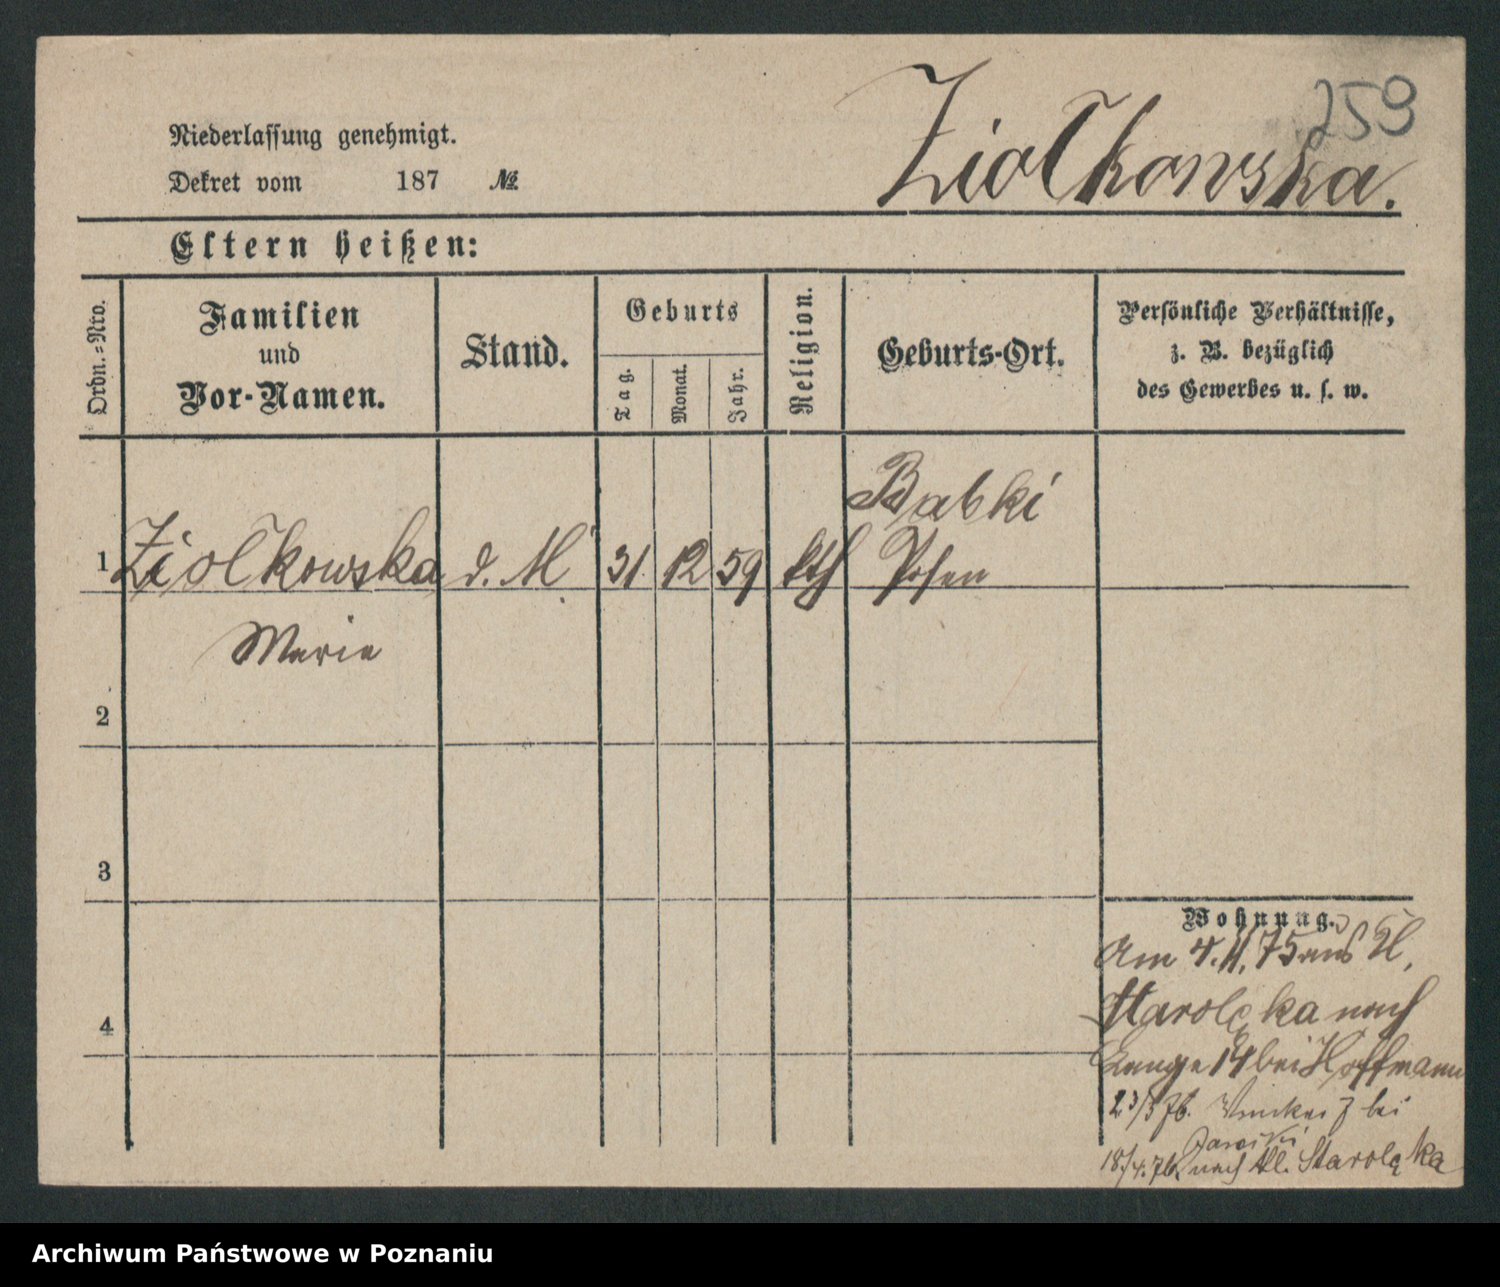 259
Ziołkowska.
Niederlassung genehmigt.
Dekret vom 187 №
Eltern heißen:
Ordn.=Nro.
Familien
und
Vor-Namen.
Stand.
Geburts
Tag.
Monat.
Jahr.
Religion.
Geburts-Ort.
Persönliche Verhältnisse,
z. B. bezüglich
des Gewerbes u. s. w.
Babki
1 Ziołkowska d. M 31 12 59 kth Posen
Marie
2
3
4
Wohnung.
Am 4. 11. 75 aus Kl.
Starolęka nach
Lange 14 bei Hoffmann
23/3 76. bei
18/4. 76. nach Kl. Starolęka
Archiwum Państwowe w Poznaniu